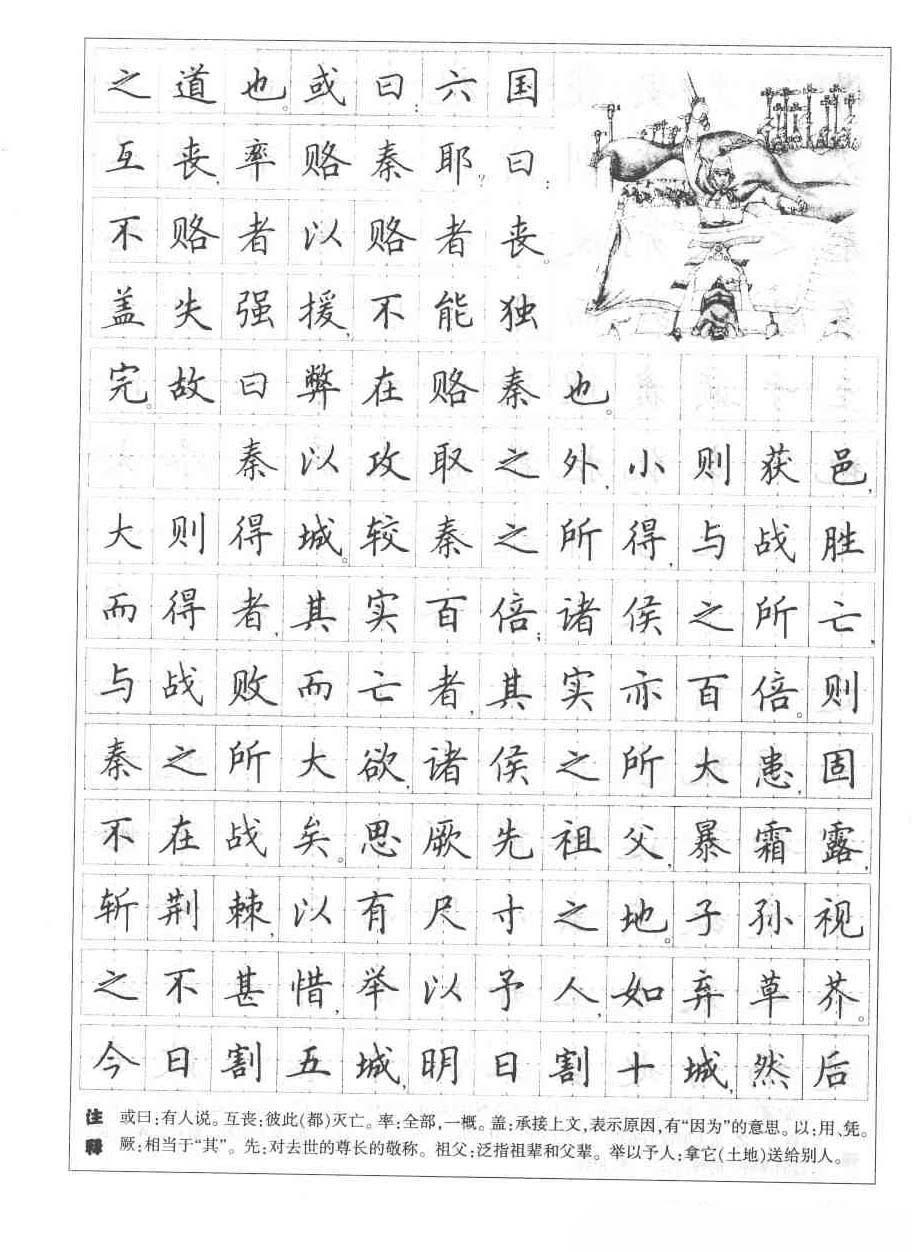 之道也。或曰:六国
互丧,率赂秦耶?曰:
不赂者以赂者丧。
盖失强援,不能独
完。故曰弊在赂秦也。
秦以攻取之外,小则获邑,
大则得城。较秦之所得,与战胜
而得者,其实百倍;诸侯之所亡,
与战败而亡者,其实亦百倍。则
秦之所大欲,诸侯之所大患,固
不在战矣。思厥先祖父,暴霜露,
斩荆棘,以有尺寸之地。子孙视
之不甚惜,举以予人,如弃草芥。
今日割五城,明日割十城,然后
注释
或曰:有人说。互丧:彼此(都)灭亡。率:全部,一概。盖:承接上文,表示原因,有“因为”的意思。以:用、凭。
厥:相当于“其”。先:对去世的尊长的敬称。祖父:泛指祖辈和父辈。举以予人:拿它(土地)送给别人。